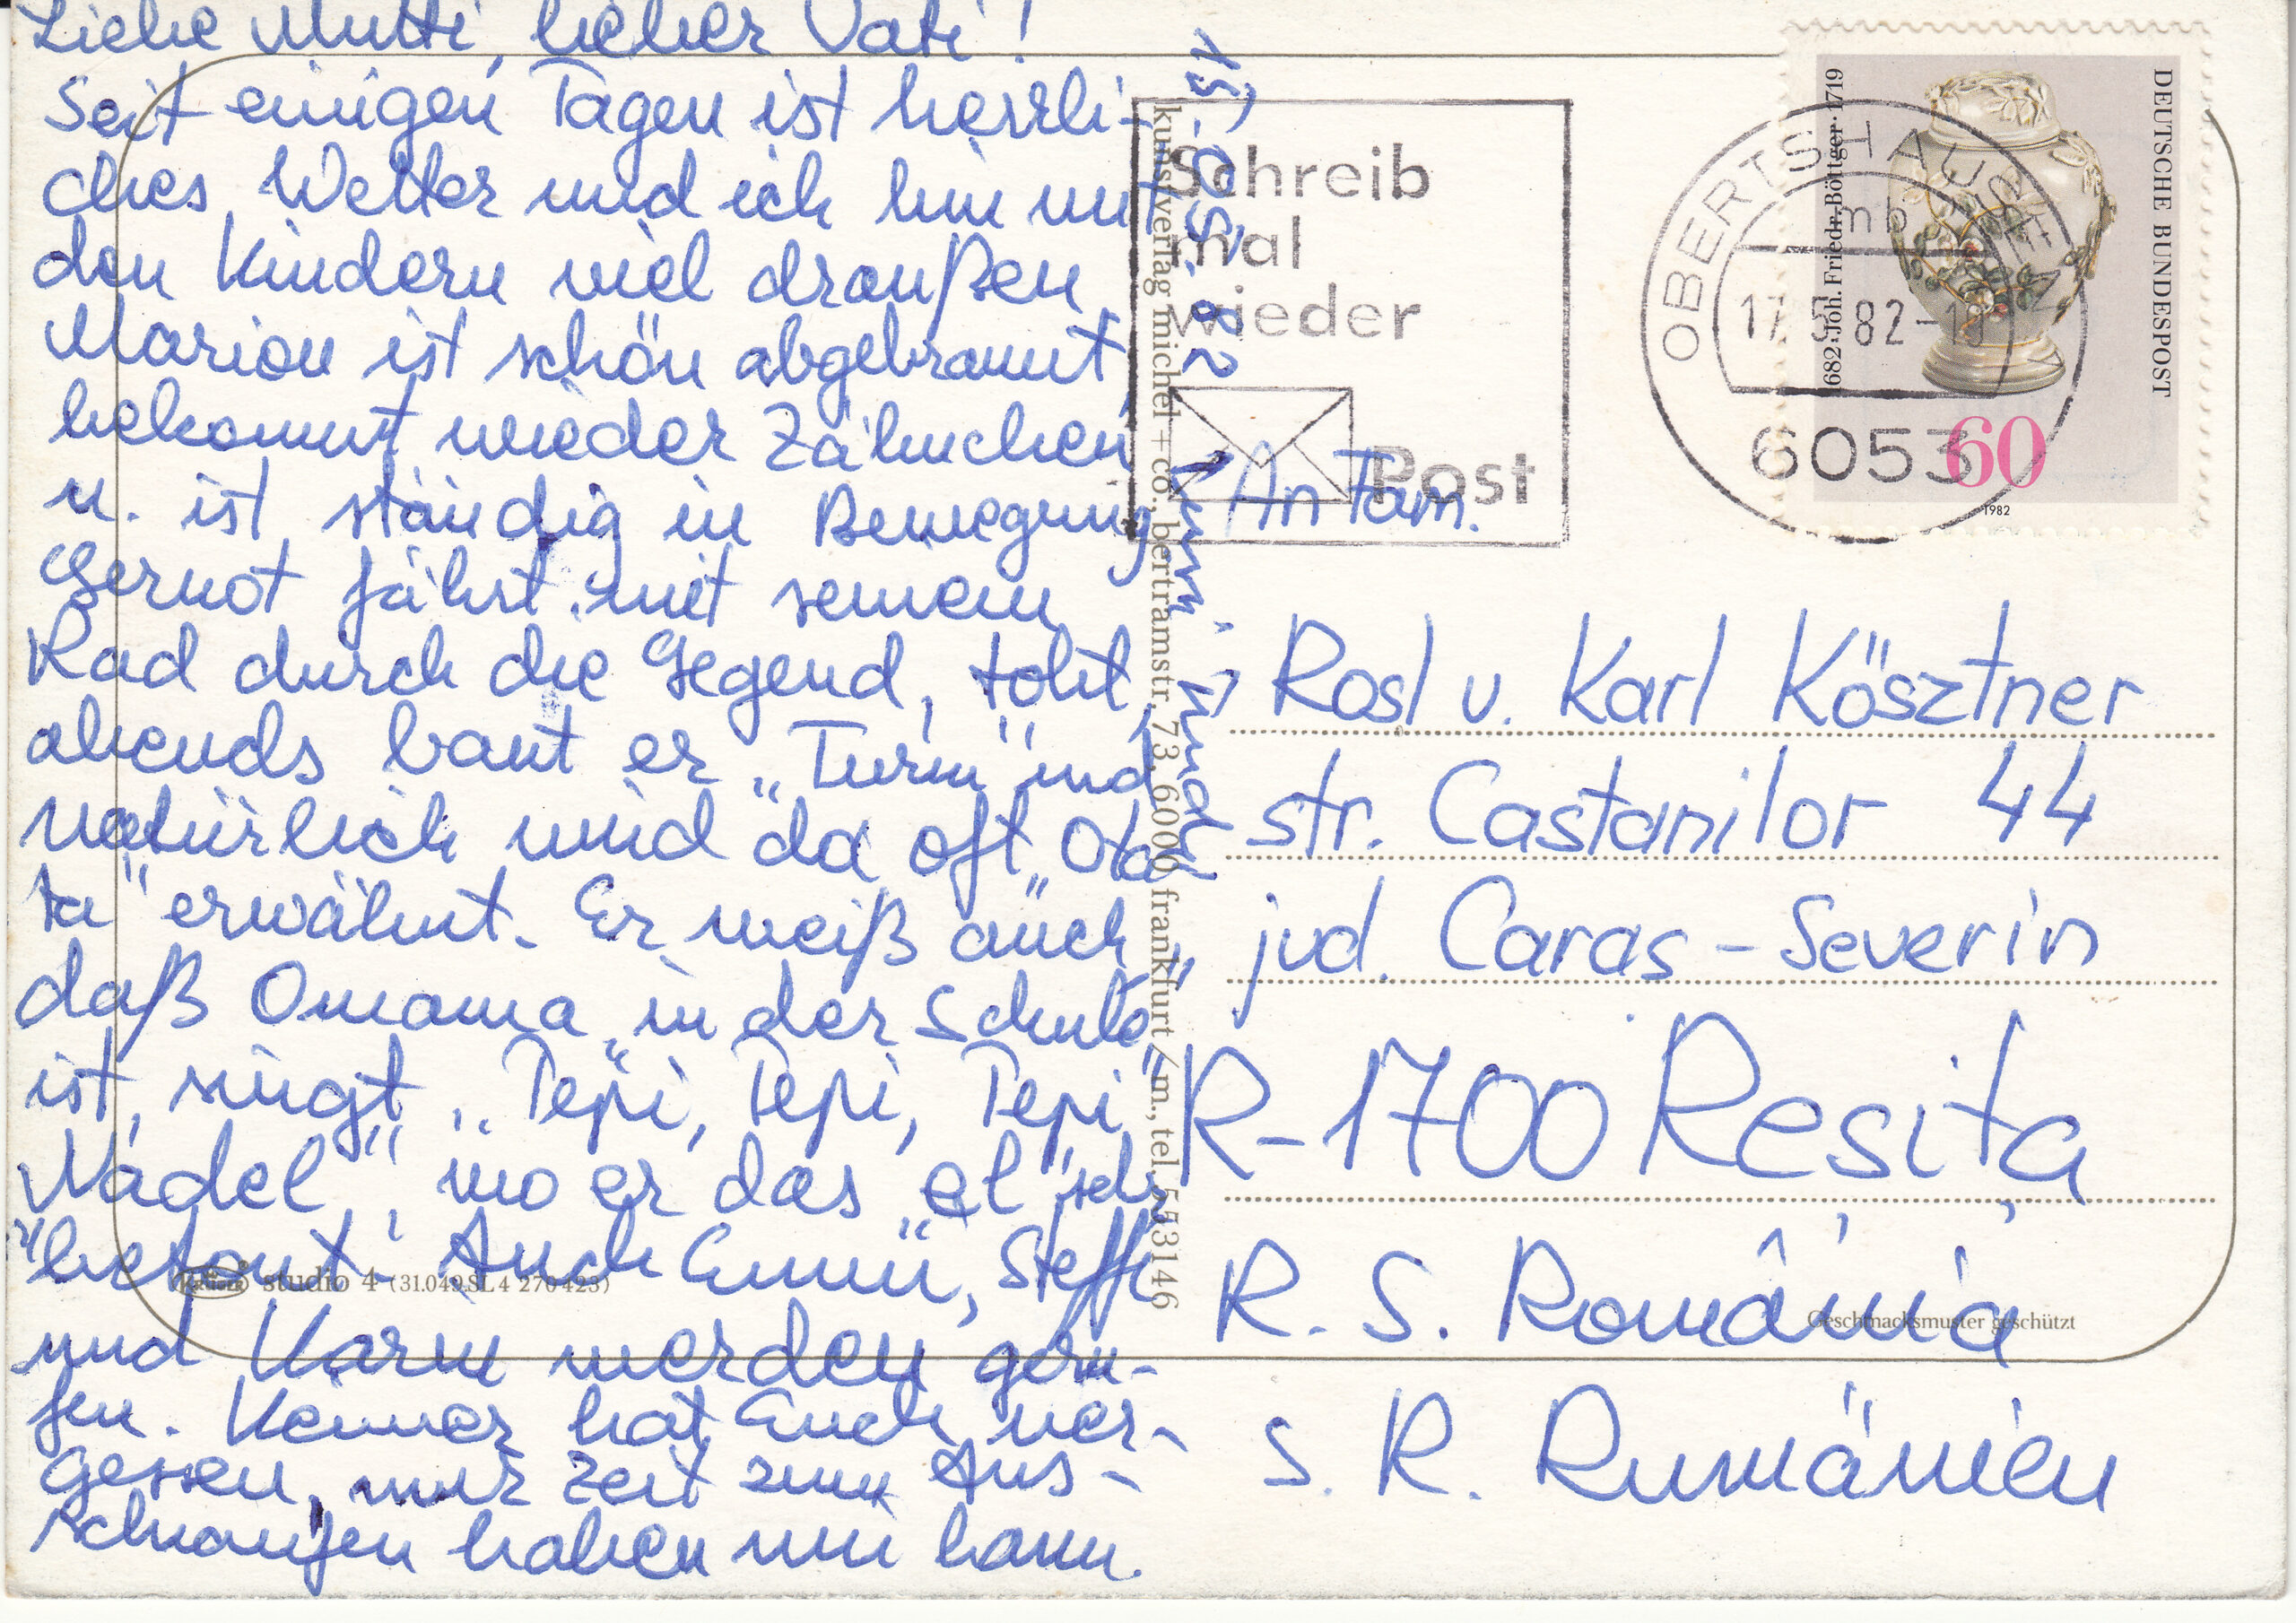 Liebe Mutti, lieber Vati!
Seit einigen Tagen ist herrli-
ches Wetter und ich bin mit
den Kindern viel draußen.
Marion ist schön abgebrannt,
bekommt wieder Zähnchen
u. ist ständig in Bewegung.
Gernot fährt mit seinem
Rad durch die Gegend, tobt,
abends baut er „Turm" und
natürlich wird da oft „Ota
ta" erwähnt. Er weiß auch,
daß Omama „in der Schule"
ist, singt „Tepi, Tepi, Tepi
Nadel", wo er das „el" sehr
betont. Auch Emmi, Steffi
und Karin werden geru-
fen. Keiner hat Euch ver-
gessen, nur Zeit zum Aus-
schnaufen haben wir kaum.
15.05.82
kunstverlag michel + co., bertramstr. 73, 6000 frankfurt/m., tel. 553146
studio 4 (31.049.SL4 270423)
Schreib
mal
wieder
Post
OBERTSHAUSEN
mb
17.5.82-18
6053
DEUTSCHE BUNDESPOST
1682 · Joh. Friedr. Böttger · 1719
60
1982
An Fam.
Rosl u. Karl Kösztner
str. Castanilor 44
jud. Caraş-Severin
R-1700 Reşiţa
R. S. România
S. R. Rumänien
Geschmacksmuster geschützt